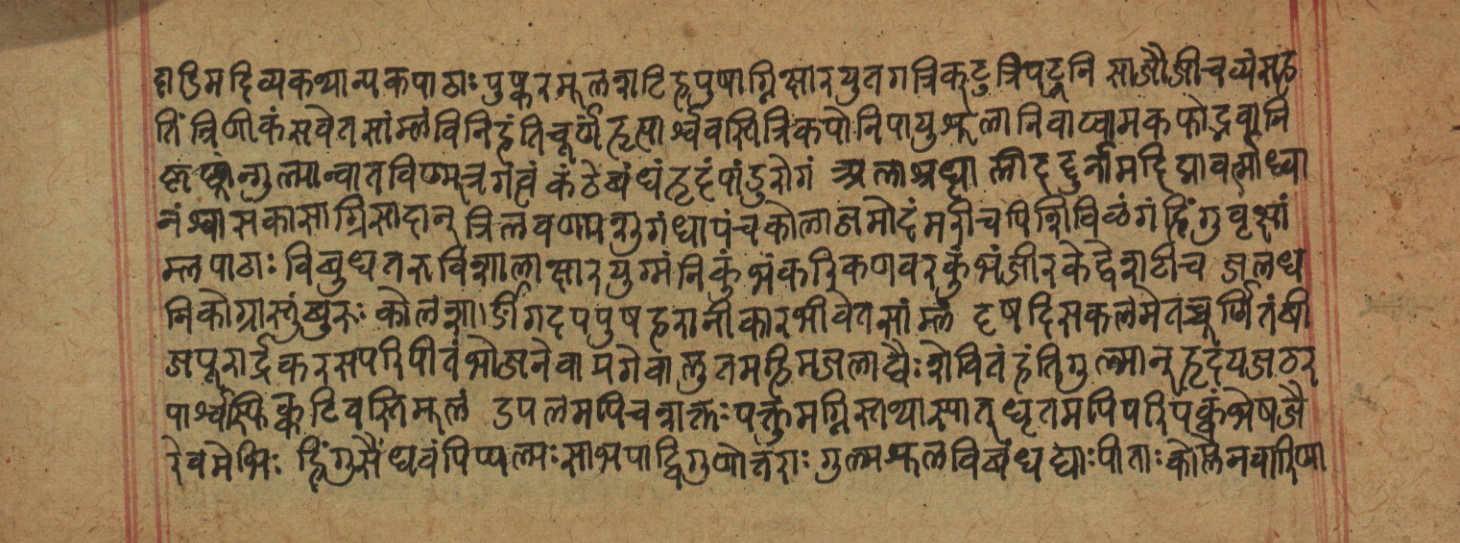 दाडिमदिव्यकथान्यकपाठाः पुष्करमूलशटिहपुषाग्निक्षारयुतगत्रिकटुत्रिपटूनि साजौजीचव्येसह
तिंत्रिणीकंसवेतसांम्लंविनिहंतिचूर्णंहृत्पार्श्ववस्तित्रिकपोनिपायुशूलानिवाय्वामकफोद्भवानि
गुल्मान्वातविण्मूत्रगत्वं कंठेबंधंहृद्ग्रहंपांडुरोगं अन्नाश्रधाप्लीहदुर्नामहिध्मावर्त्माध्मा
नंश्वासकासाग्निसादान् त्रिलवणपशुगंधापंचकोलाजमोदंमरीचपिशिविळंगंहिंगुवृक्षां
म्लपाठाः विबुधतरुविशालाक्षारयुग्मंनिकुंभंकरिकणवरकुंभंजीरकेद्वेशटीच जलध
निकोग्रास्तुंबुरुः कोलशाार्ङगदपपुषहरानीकारभीवेतसांम्लं दृषदिसकलमेतच्चूर्णितंबी
जपूरार्द्रकरसपरिपीतंभोजनेवापगेवा लुतमहिमजलाद्यैःशेवितंहंतिगुल्मान् हृदंयजठर
पार्श्वस्फिक्कटिवस्तिमूलं उपलमपिचशक्तः पक्तुमग्निस्तथास्यात् धृतमपिपरिपक्वंभेषजै
रेवमेभिः हिंगुसैंधवंपिप्पल्यः साभयाद्विगुणोत्तराः गुल्मशूलविबंधघ्नाः पीताः कोलेनवारिणा